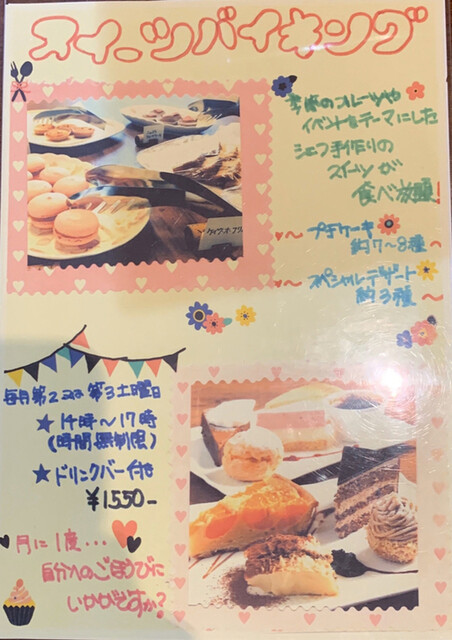 スイーツバイキング
季節のフルーツや
イベントをテーマにした
シェフ手作りの
スイーツが
食べ放題!
~プチケーキ
約7~8種~
~スペシャルデザート
約3種~
毎月第2 第3土曜日
★14時~17時
(時間無制限)
★ドリンクバー付
¥1,550-
月に1度...
自分へのごほうびに
いかがですか?